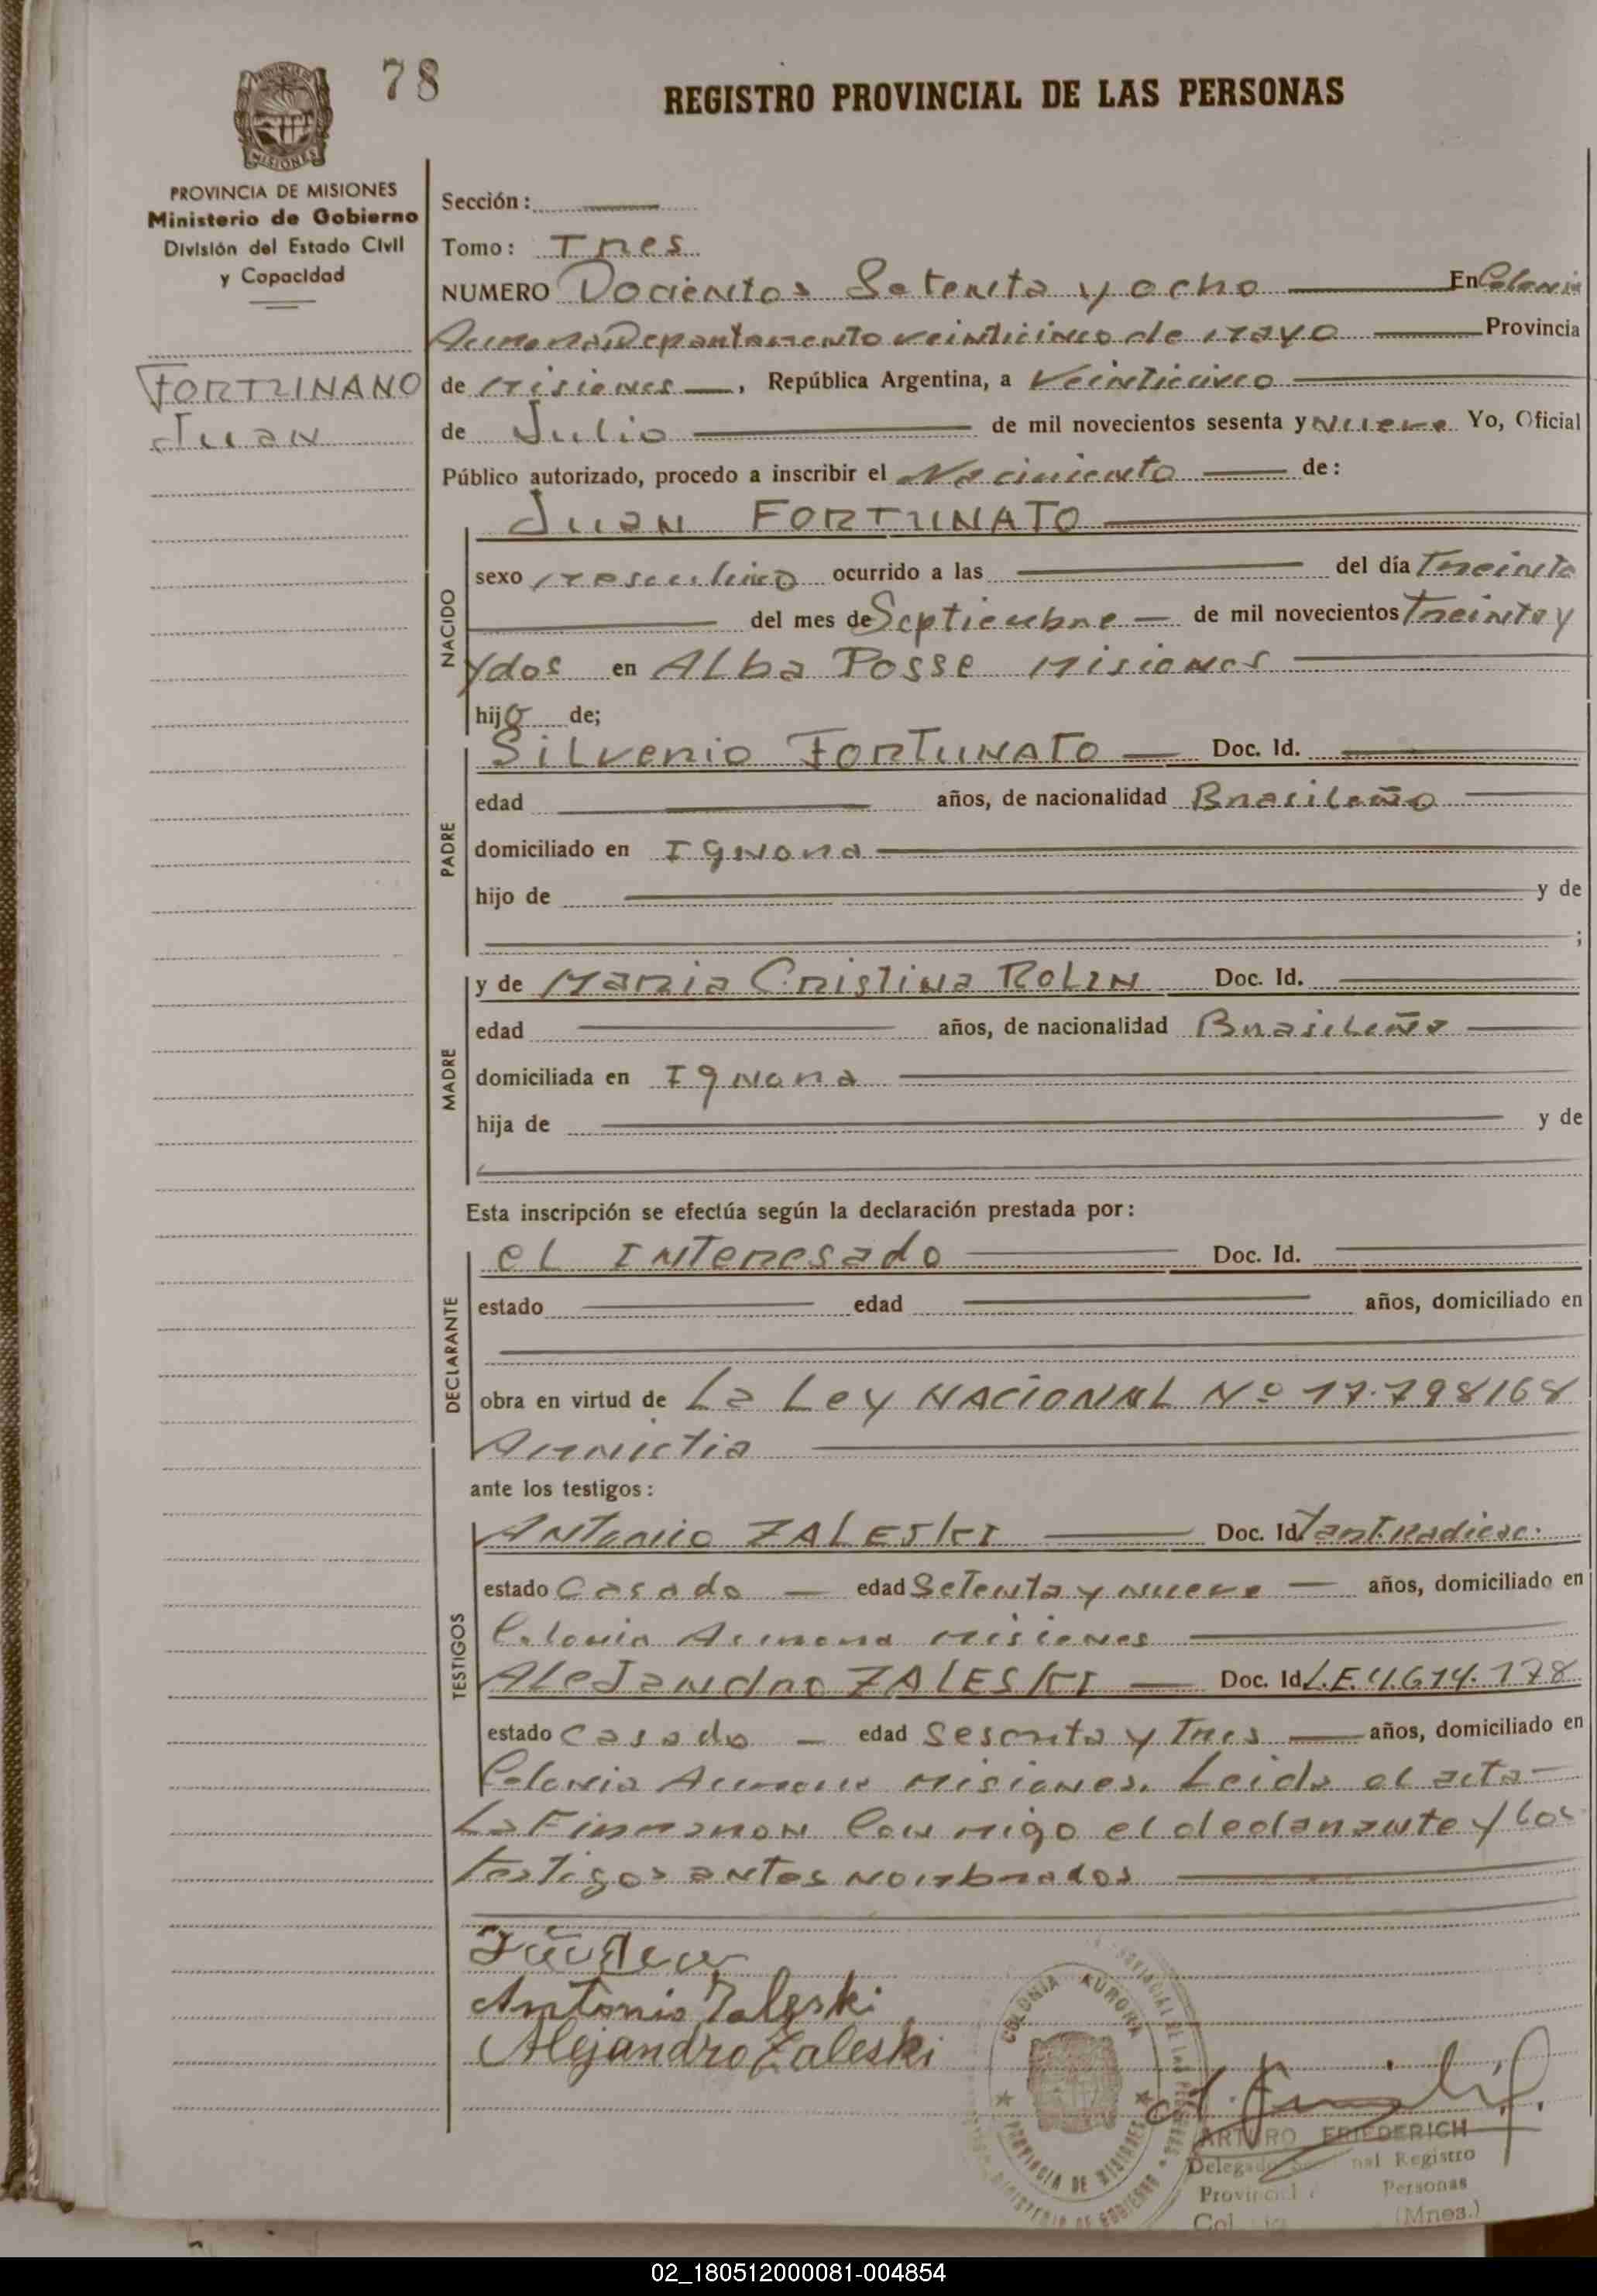 78
REGISTRO PROVINCIAL DE LAS PERSONAS
MISIONES
PROVINCIA DE MISIONES
Ministerio de Gobierno
División del Estado Civil
y Capacidad
FORTUNATO
Juan
Sección:
Tomo: Tres
NUMERO Docientos Setenta y ocho En Colonia
Aurora, Departamento veinticinco de Mayo Provincia
de Misiones, República Argentina, a Veinticinco
de Julio de mil novecientos sesenta y Nueve Yo, Oficial
Público autorizado, procedo a inscribir el Nacimiento de:
NACIDO
Juan FORTUNATO
sexo masculino ocurrido a las del día Treinta
del mes de Septiembre de mil novecientos Treinta y
y dos en Alba Posse Misiones
hijo de;
PADRE
Silverio FORTUNATO Doc. Id.
edad años, de nacionalidad Brasileño
domiciliado en Ignora
hijo de y de
;
MADRE
y de Maria Cristina ROLIN Doc. Id.
edad años, de nacionalidad Brasileña
domiciliada en Ignora
hija de y de
Esta inscripción se efectúa según la declaración prestada por:
DECLARANTE
el Interesado Doc. Id.
estado edad años, domiciliado en
obra en virtud de La Ley NACIONAL Nº 17.798/68
Amnistia
ante los testigos:
TESTIGOS
Antonio ZALESKI Doc. Id. Cart. Radicac.
estado Casado edad Setenta y nueve años, domiciliado en
Colonia Aurora Misiones
Alejandro ZALESKI Doc. Id. L.E. 4.614.178
estado Casado edad Sesenta y Tres años, domiciliado en
Colonia Aurora Misiones. Leida el acta
La Firmaron Con migo el declarante y los
testigos antes nombrados
Antonio Zaleski
Alejandro Zaleski
COLONIA AURORA
PROVINCIA DE MISIONES
ARTURO FRIEDERICH
Delegado nal Registro
Provincial Personas
Col (Mnes.)
02_180512000081-004854